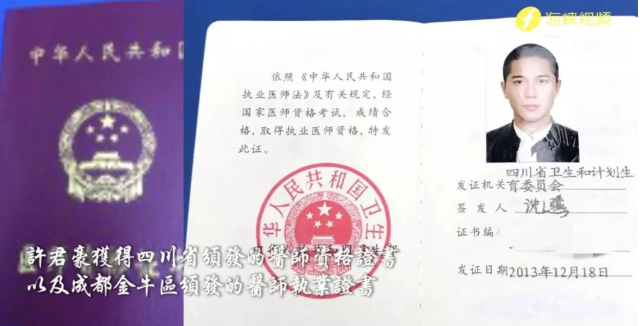 海峡视频
中华人民共和国
依照《中华人民共和国
执业医师法》及有关规定，经
国家医师资格考试，成绩合
格，取得执业医师资格，特发
此证。
中华人民共和国卫生
四川省卫生和计划生
发证机关育委员会
签发人
证书编
发证日期2013年12月18日
許君豪獲得四川省頒發的醫師資格證書
以及成都金牛區頒發的醫師執業證書